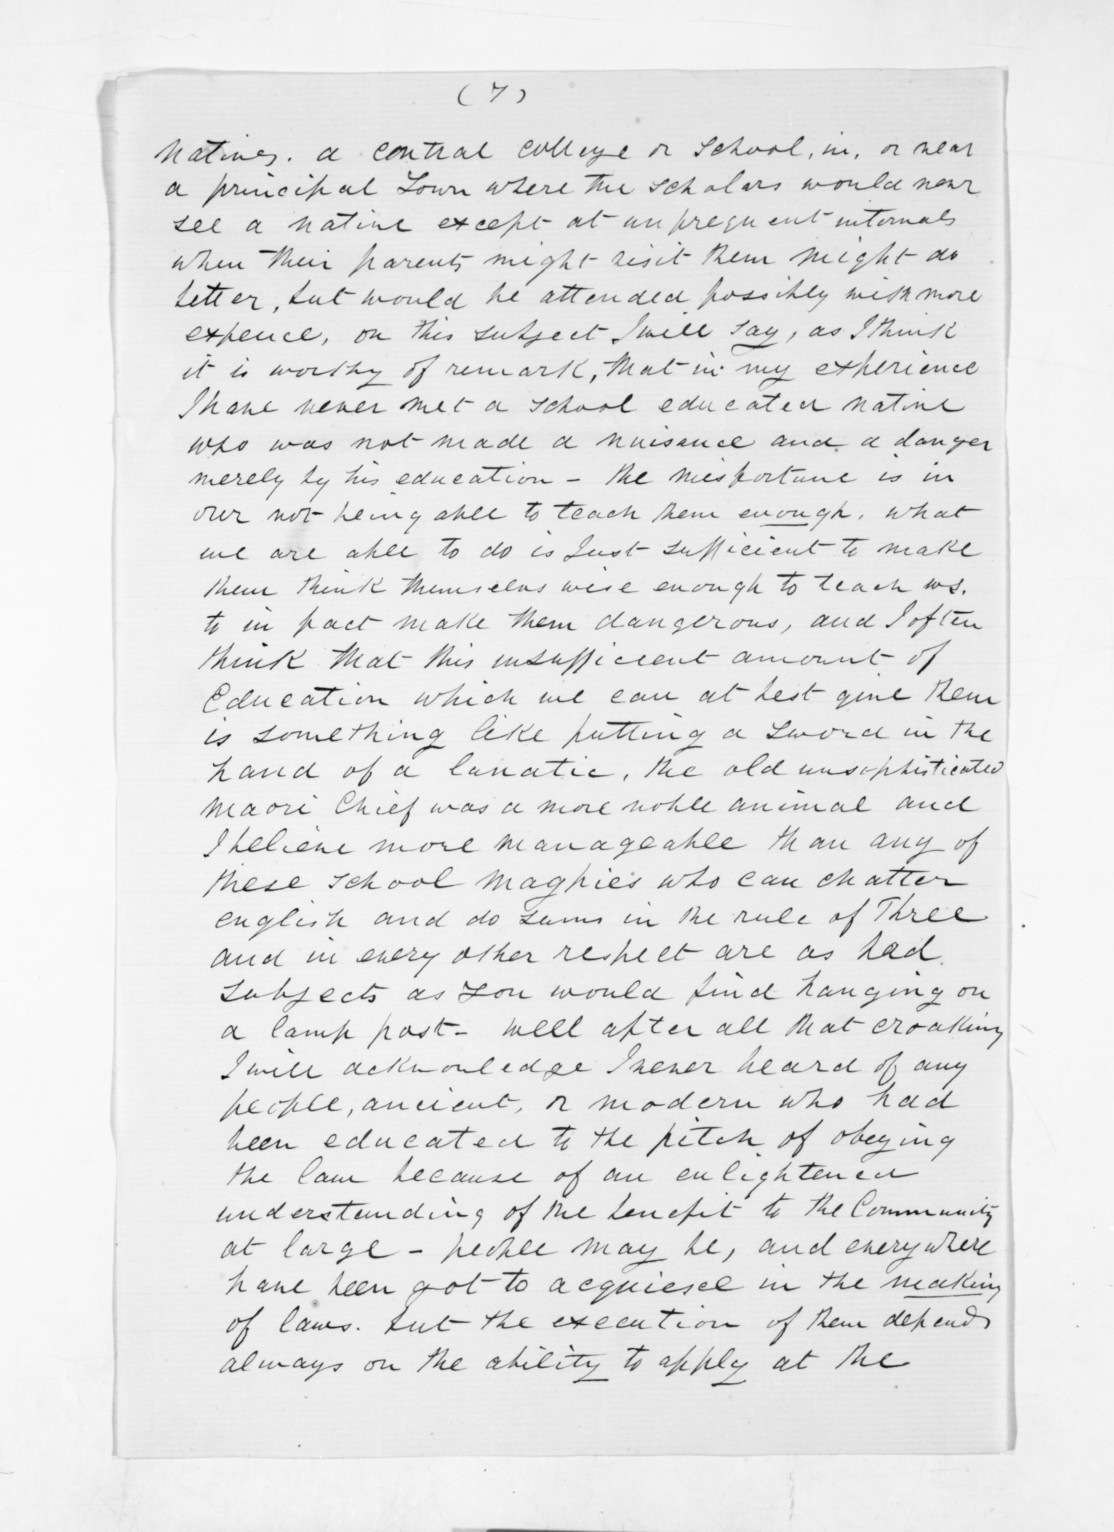 (7)
Natives. a central college or school, in, or near
a principal Town where the scholars would never
see a native except at unfrequent intervals
when their parents might visit them might do
better, but would be attended possibly with more
expence, on this subject I will say, as I think
it is worthy of remark, that in my experience
I have never met a school educated native
who was not made a nuisance and a danger
merely by his education - the misfortune is in
our not being able to teach them enough. what
we are able to do is Just sufficient to make
them think themselves wise enough to teach us.
to in fact make them dangerous, and I often
think that this insufficient amount of
Education which we can at best give them
is something like putting a sword in the
hand of a lunatic, the old unsophisticated
Maori Chief was a more noble animal and
I believe more manageable than any of
these school magpies who can chatter
english and do sums in the rule of Three
and in every other respect are as bad
subjects as you would find hanging on
a lamp post - well after all that croaking
I will acknowledge I never heard of any
people, ancient, or modern who had
been educated to the pitch of obeying
the law because of an enlightened
understanding of the benefit to the Community
at large - people may be, and everywhere
have been got to acquiesce in the making
of laws. but the execution of them depends
always on the ability to apply at the